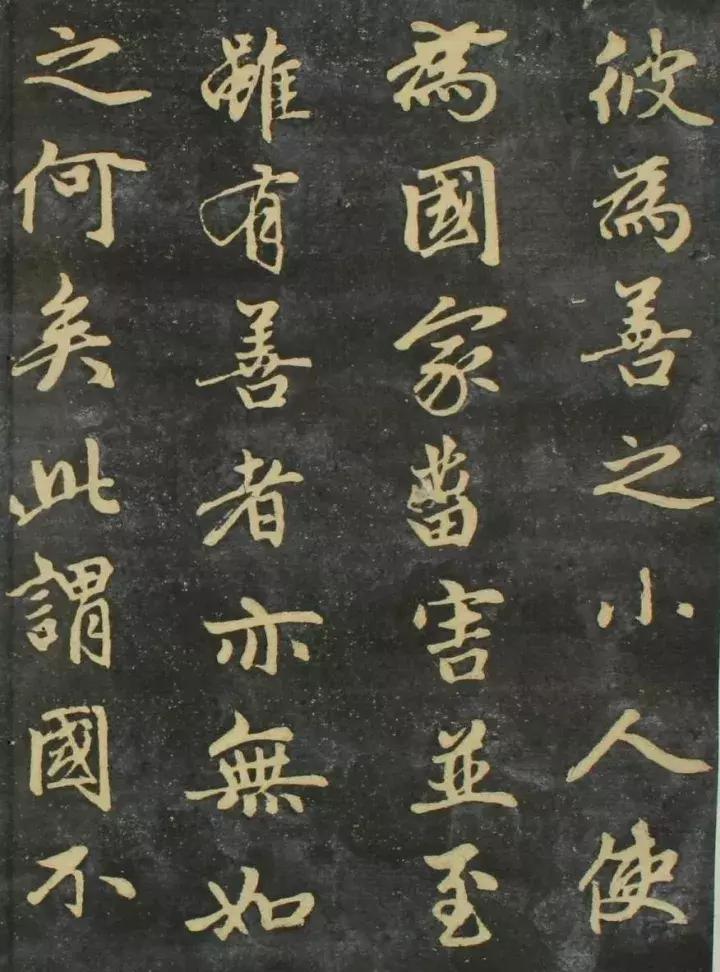 彼為善之小人使
為國家菑害並至
雖有善者亦無如
之何矣此謂國不